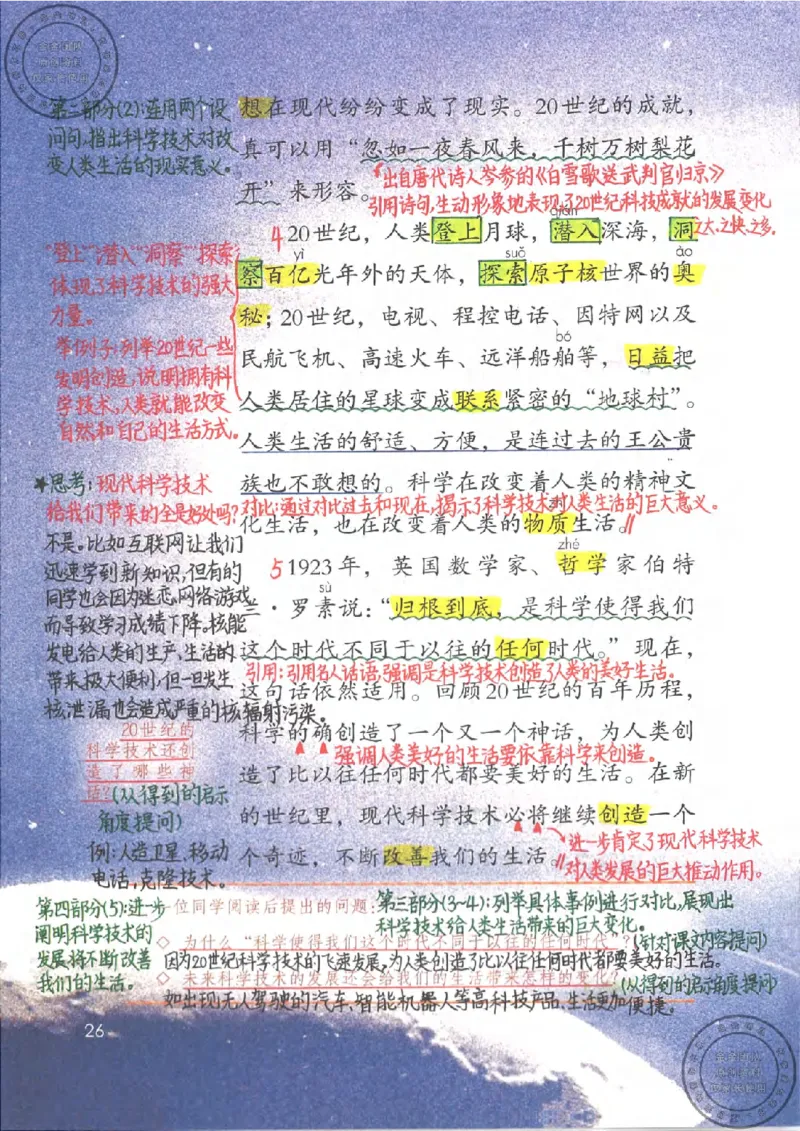 第二部分(2):连用两个设
问句,指出科学技术对改
变人类生活的现实意义。
想在现代纷纷变成了现实。20世纪的成就，
真可以用“忽如一夜春风来，千树万树梨花
开”来形容。
“出自唐代诗人岑参的《白雪歌送武判官归京》
引用诗句,生动形象地表现了20世纪科技成就的发展变化
之大、之快、之多。
“登上”“潜入”“洞察”“探索”
体现了科学技术的强大
力量。
举例子:列举20世纪一些
发明创造,说明拥有科
学技术,人类就能改变
自然和自己的生活方式。
qián
4 20世纪，人类登上月球，潜入深海，洞
yì suǒ ào
察百亿光年外的天体，探索原子核世界的奥
秘；20世纪，电视、程控电话、因特网以及
bó
民航飞机、高速火车、远洋船舶等，日益把
人类居住的星球变成联系紧密的“地球村”。
人类生活的舒适、方便，是连过去的王公贵
族也不敢想的。科学在改变着人类的精神文
对比:通过对比过去和现在,揭示了科学技术对人类生活的巨大意义。
化生活，也在改变着人类的物质生活。
★思考:现代科学技术
给我们带来的全是好处吗?
不是。比如互联网让我们
迅速学到新知识,但有的
同学也会因为迷恋网络游戏
而导致学习成绩下降。核能
发电给人类的生产、生活的
带来极大便利,但一旦发生
核泄漏也会造成严重的核辐射污染。
zhé
5 1923年，英国数学家、哲学家伯特
sù
兰·罗素说：“归根到底，是科学使得我们
这个时代不同于以往的任何时代。”现在，
引用:引用名人话语,强调是科学技术创造了人类的美好生活。
这句话依然适用。回顾20世纪的百年历程，
科学的确创造了一个又一个神话，为人类创
强调人类美好的生活要依靠科学来创造。
造了比以往任何时代都要美好的生活。在新
的世纪里，现代科学技术必将继续创造一个
个奇迹，不断改善我们的生活。
进一步肯定了现代科学技术
对人类发展的巨大推动作用。
20世纪的
科学技术还创
造了哪些神
话?(从得到的启示
角度提问)
例:人造卫星,移动
电话,克隆技术。
第四部分(5):进一步
阐明科学技术的
发展将不断改善
我们的生活。
第三部分(3~4):列举具体事例进行对比,展现出
科学技术给人类生活带来的巨大变化。
一位同学阅读后提出的问题：
◇ 为什么“科学使得我们这个时代不同于以往的任何时代”？(针对课文内容提问)
因为20世纪科学技术的飞速发展,为人类创造了比以往任何时代都要美好的生活。
◇ 未来科学技术的发展还会给我们的生活带来怎样的变化？(从得到的启示角度提问)
如出现无人驾驶的汽车、智能机器人等高科技产品,生活更加便捷。
26